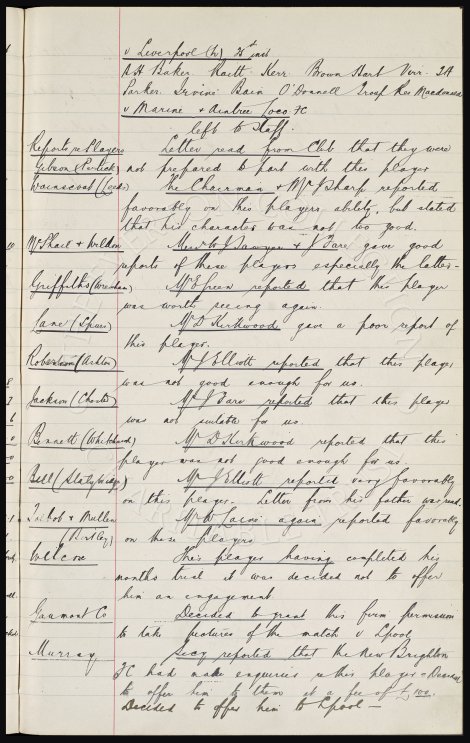 v Liverpool (h) 25th inst
A H Baker. Raitt. Kerr. Brown Hart Virr. J A
Parker. Irvine Bain O'Donnell Troup Res Macdonald
v Marine & Aintree Loco. FC
left to Staff.
Reports re Players Letter read from Club that they were
Gibson (Partick) not prepared to part with this player
Wainscoat (Leeds) The Chairman & Mr J Sharp reported
favorably on this players ability, but stated
that his character was not too good.
McPhael & Weldon Messrs J Sawyer & J Fare gave good
reports of these players especially the latter -
Griffiths (Wrexham) Mr E Green reported that this player
was worth seeing again.
Lane (Spurs) Mr D Kirkwood gave a poor report of
this player.
Robertson (Ashton) Mr J Elliott reported that this player
was not good enough for us.
Jackson (Chester) Mr J Fare reported that this player
was not suitable for us.
Bennett (Whitchurch) Mr D. Kirkwood reported that this
player was not good enough for us
Bell (Stalybridge) Mr J Elliott reported very favorably
on this player. Letter from his father was read.
& Mullen Mr W again reported favorably
on these players
Willcox This player having completed his
months trial it was decided not to offer
him an engagement
Gaumont Co Decided to grant this firm permission
to take pictures of the match v Lpool
Murray Secy reported that the New Brighton
FC had made enquiries re this player - Decided
to offer him to them at a fee of £100.
Decided to offer him to Lpool -